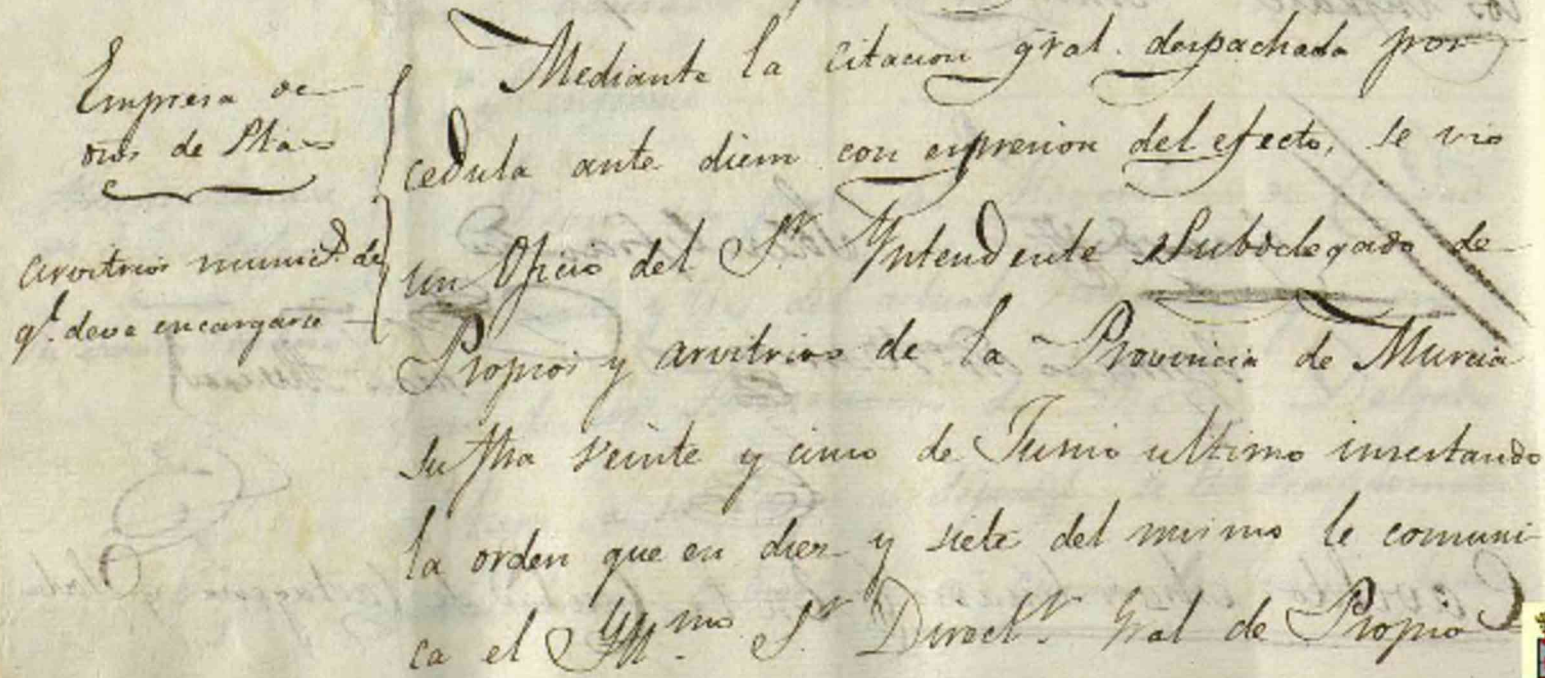 Empresa de
dros de Pta
arvitrios municp.s de
q.e deve encargarse
Mediante la citacion gral. despachada por
cedula ante diem con expresion del efecto, se vio
un Oficio del S.r Yntendente Subdelegado de
Propios y arvitrios de la Provincia de Murcia
su fha veinte y cinco de Junio ultimo insertando
la orden que en diez y siete del mismo le comuni
ca el Yll.mo S.r Direct.r Gral de Propio